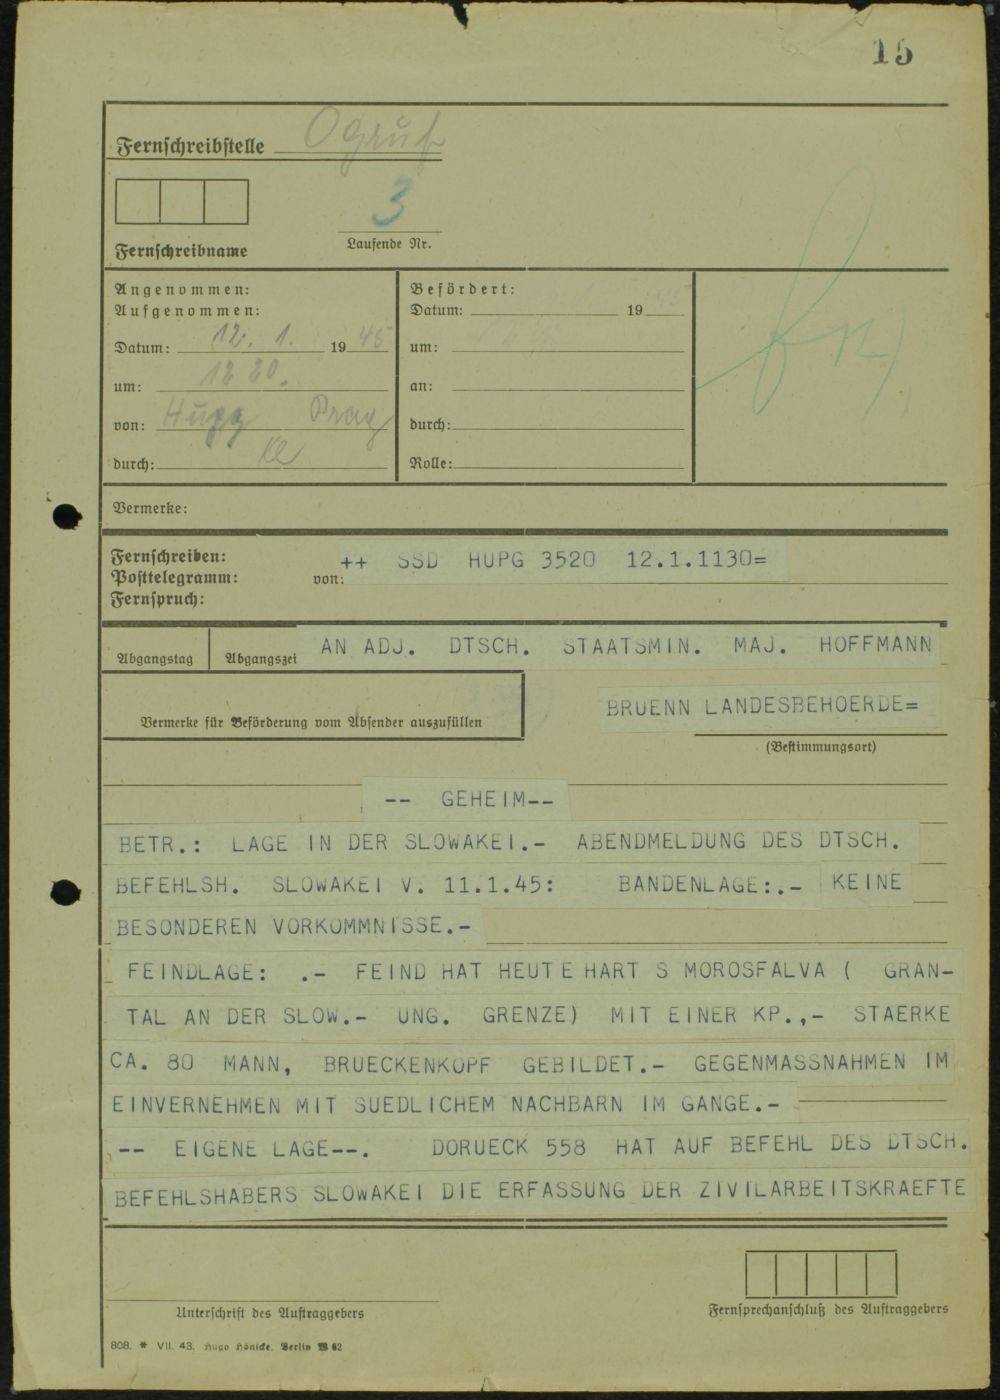 15
Fernschreibstelle Ogruf
3
Fernschreibname
Laufende Nr.
Angenommen:
Aufgenommen:
Datum: 12. 1. 19 45
um: 12 20.
von: Hupg Prag
durch:
Befördert:
Datum: 19 45
um:
an:
durch:
Rolle:
Vermerke:
Fernschreiben:
Posttelegramm: von:
Fernspruch:
++ SSD HUPG 3520 12.1.1130=
Abgangstag Abgangszei
AN ADJ. DTSCH. STAATSMIN. MAJ. HOFFMANN
Vermerke für Beförderung vom Absender auszufüllen
BRUENN LANDESBEHOERDE=
(Bestimmungsort)
-- GEHEIM--
BETR.: LAGE IN DER SLOWAKEI.- ABENDMELDUNG DES DTSCH.
BEFEHLSH. SLOWAKEI V. 11.1.45: BANDENLAGE:.- KEINE
BESONDEREN VORKOMMNISSE.-
FEINDLAGE: .- FEIND HAT HEUTE HART S MOROSFALVA ( GRAN-
TAL AN DER SLOW.- UNG. GRENZE) MIT EINER KP.,- STAERKE
CA. 80 MANN, BRUECKENKOPF GEBILDET.- GEGENMASSNAHMEN IM
EINVERNEHMEN MIT SUEDLICHEM NACHBARN IM GANGE.-
-- EIGENE LAGE--. DORUECK 558 HAT AUF BEFEHL DES DTSCH.
BEFEHLSHABERS SLOWAKEI DIE ERFASSUNG DER ZIVILARBEITSKRAEFTE
Unterschrift des Auftraggebers
Fernsprechanschluß des Auftraggebers
808. * VII. 43. Hugo Hönicke, Berlin W 62